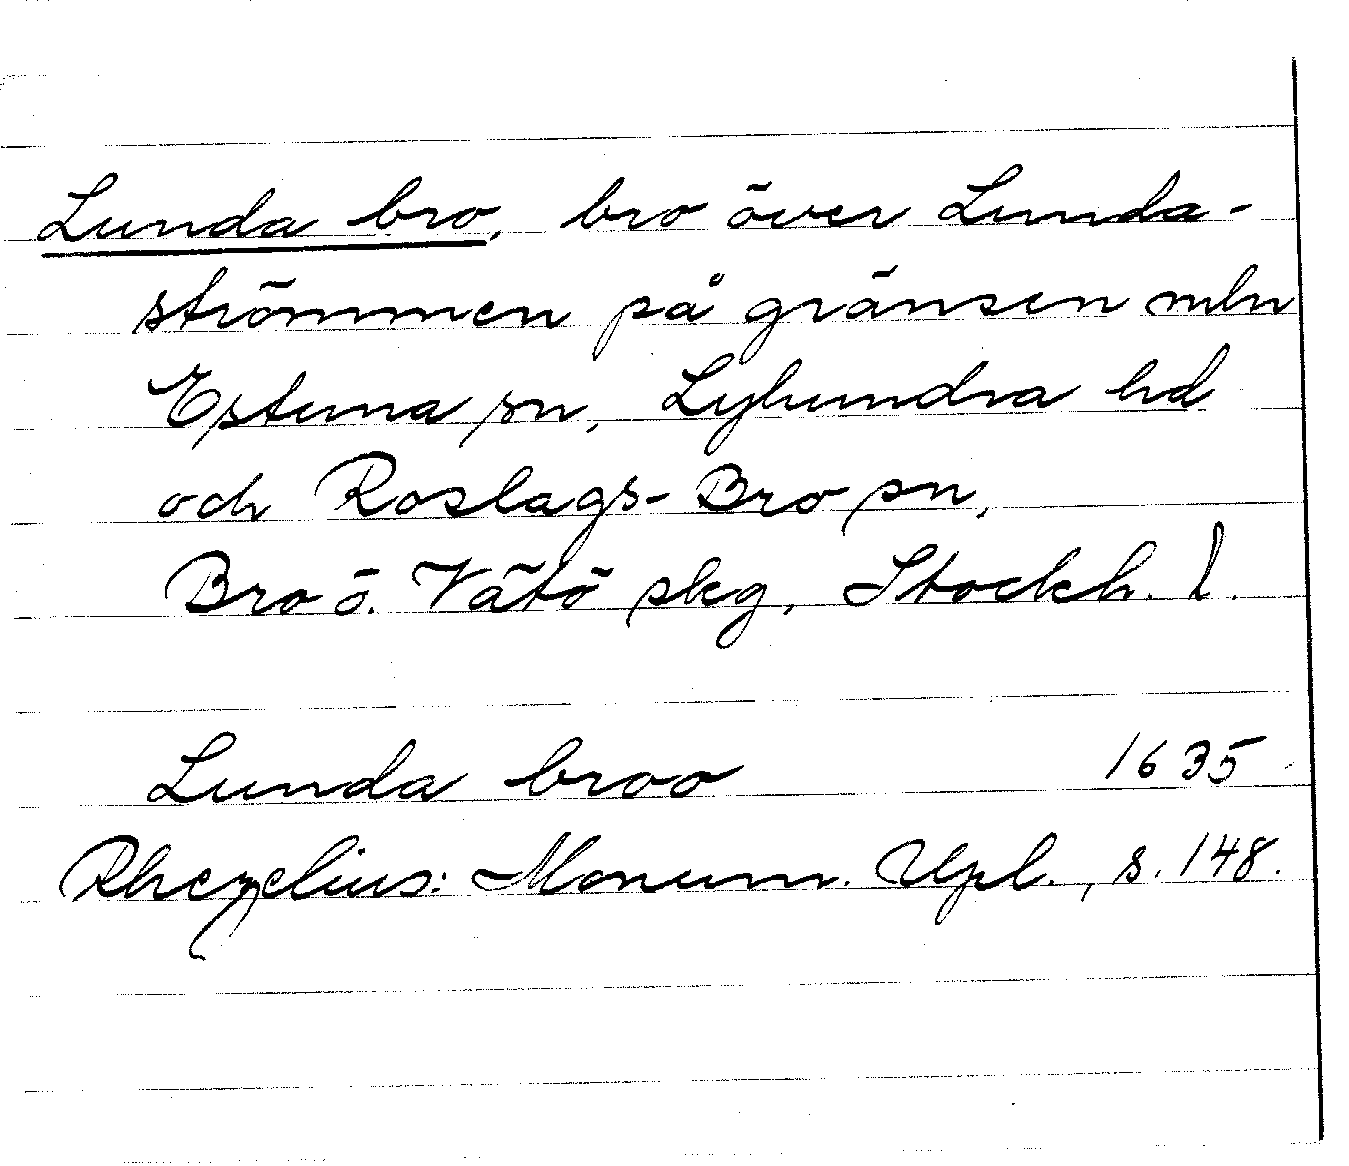 Lunda bro, bro över Lunda-
strömmen på gränsen mln
Estuna sn, Lyhundra hd
och Roslags-Bro sn,
Bro o. Vätö skg, Stockh. l.
Lunda broo 1635
Rhezelius: Monum. Upl., s. 148.